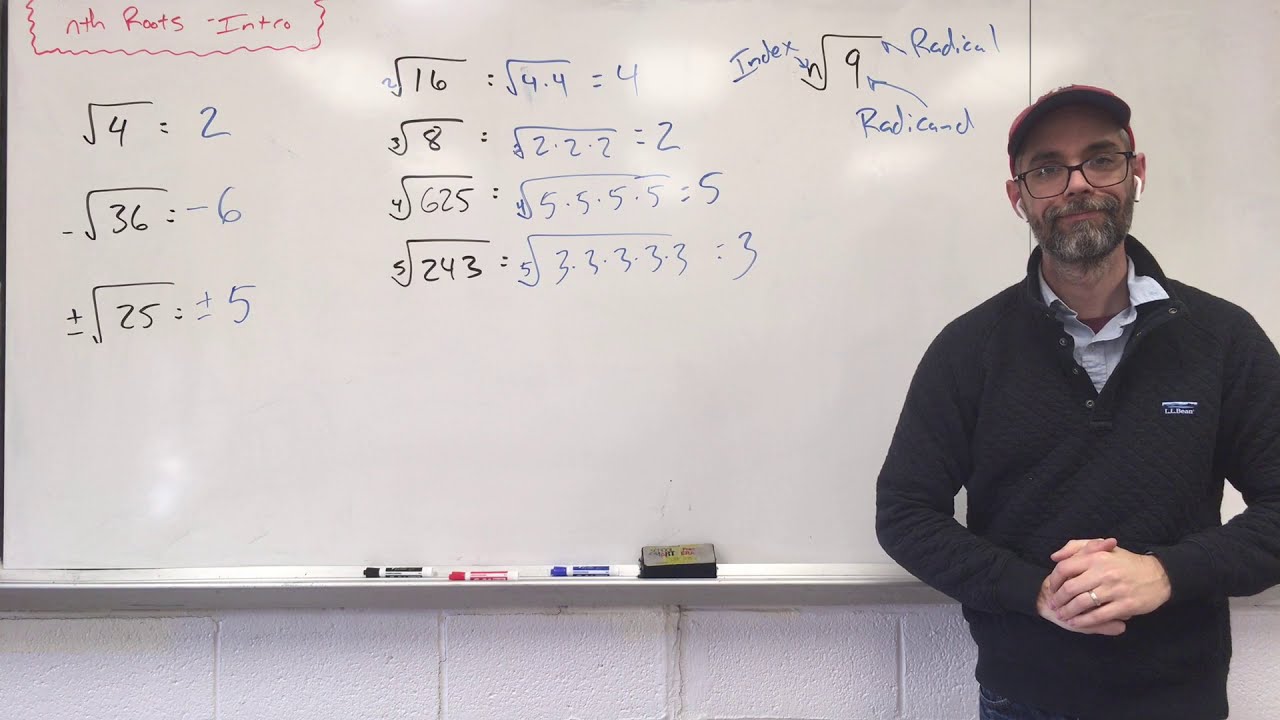 nth Roots - Intro
√4 = 2
-√36 = -6
±√25 = ±5
²√16 = √4·4 = 4
³√8 = ³√2·2·2 = 2
⁴√625 = ⁴√5·5·5·5 = 5
⁵√243 = ⁵√3·3·3·3·3 = 3
Index
ⁿ√9
Radical
Radicand
L.L.Bean